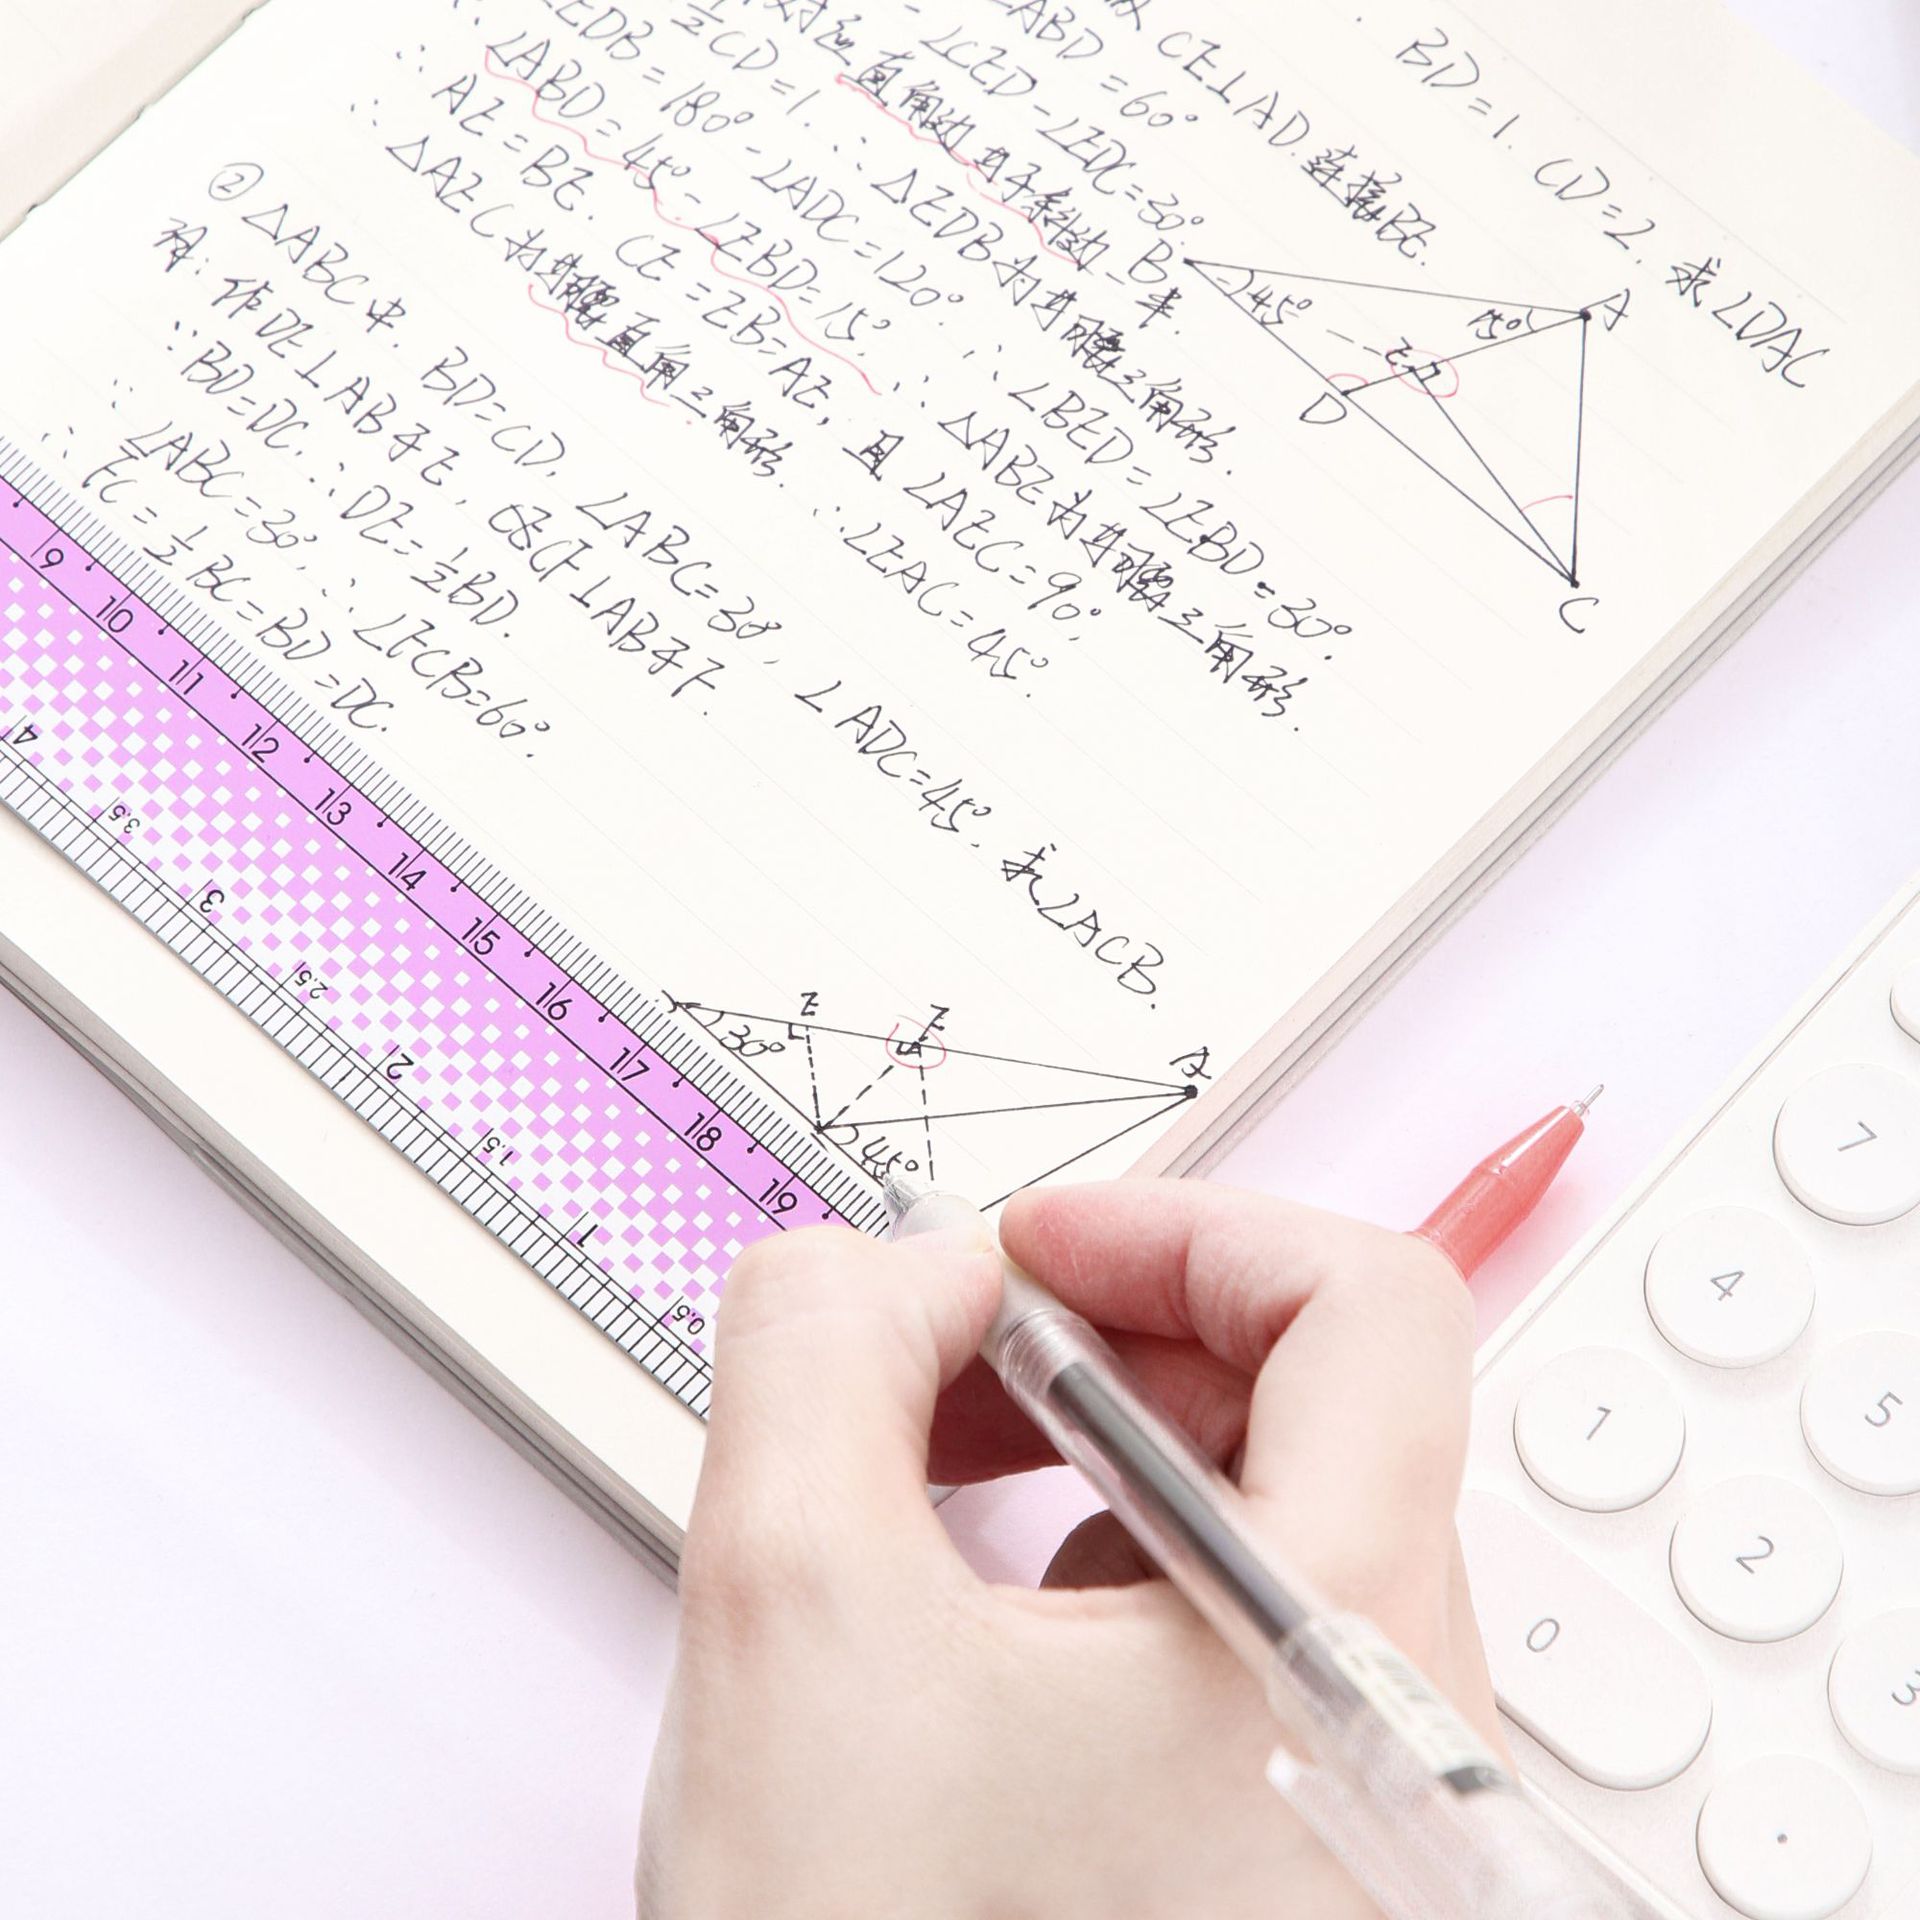 BD=1. CD=2. 求∠DAC
CE⊥AD. 连接BE.
∠ABD=60°
-∠CED-∠EDC=30°.
½CD=1. 直角边等于斜边一半.
∠EDB=180°-∠ADC=120°. ∴△EDB为等腰三角形.
∴∠BED=∠EBD=30°.
∠ABD=45°-∠EBD=15°. ∴△ABE为等腰三角形.
∴AE=BE. CE=EB=AE, 且∠AEC=90°,
∴△AEC为等腰直角三角形. ∴∠EAC=45°.
②△ABC中. BD=CD, ∠ABC=30°, ∠ADC=45°, 求∠ACB.
解: 作DE⊥AB于E, 过C作CF⊥AB于F.
∵BD=DC. ∴DE=½BD.
∵∠ABC=30°, ∴∠FCB=60°.
∴FC=½BC=BD=DC.
B
45°
E
15°
A
D
C
30°
E
A
45°
9
10
11
12
13
14
15
16
17
18
19
4
3.5
3
2.5
2
1.5
1
0.5
7
4
1
5
2
0
3
.